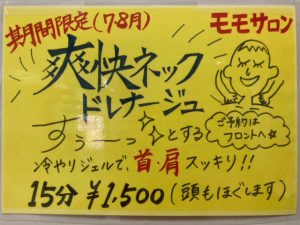 期間限定(7・8月)
モモサロン
爽快ネック
ドレナージュ
すぅーっ☆とする
ご予約は
フロントへ☆
冷やりジェルで、首・肩スッキリ!!
15分 ¥1,500(頭もほぐします)